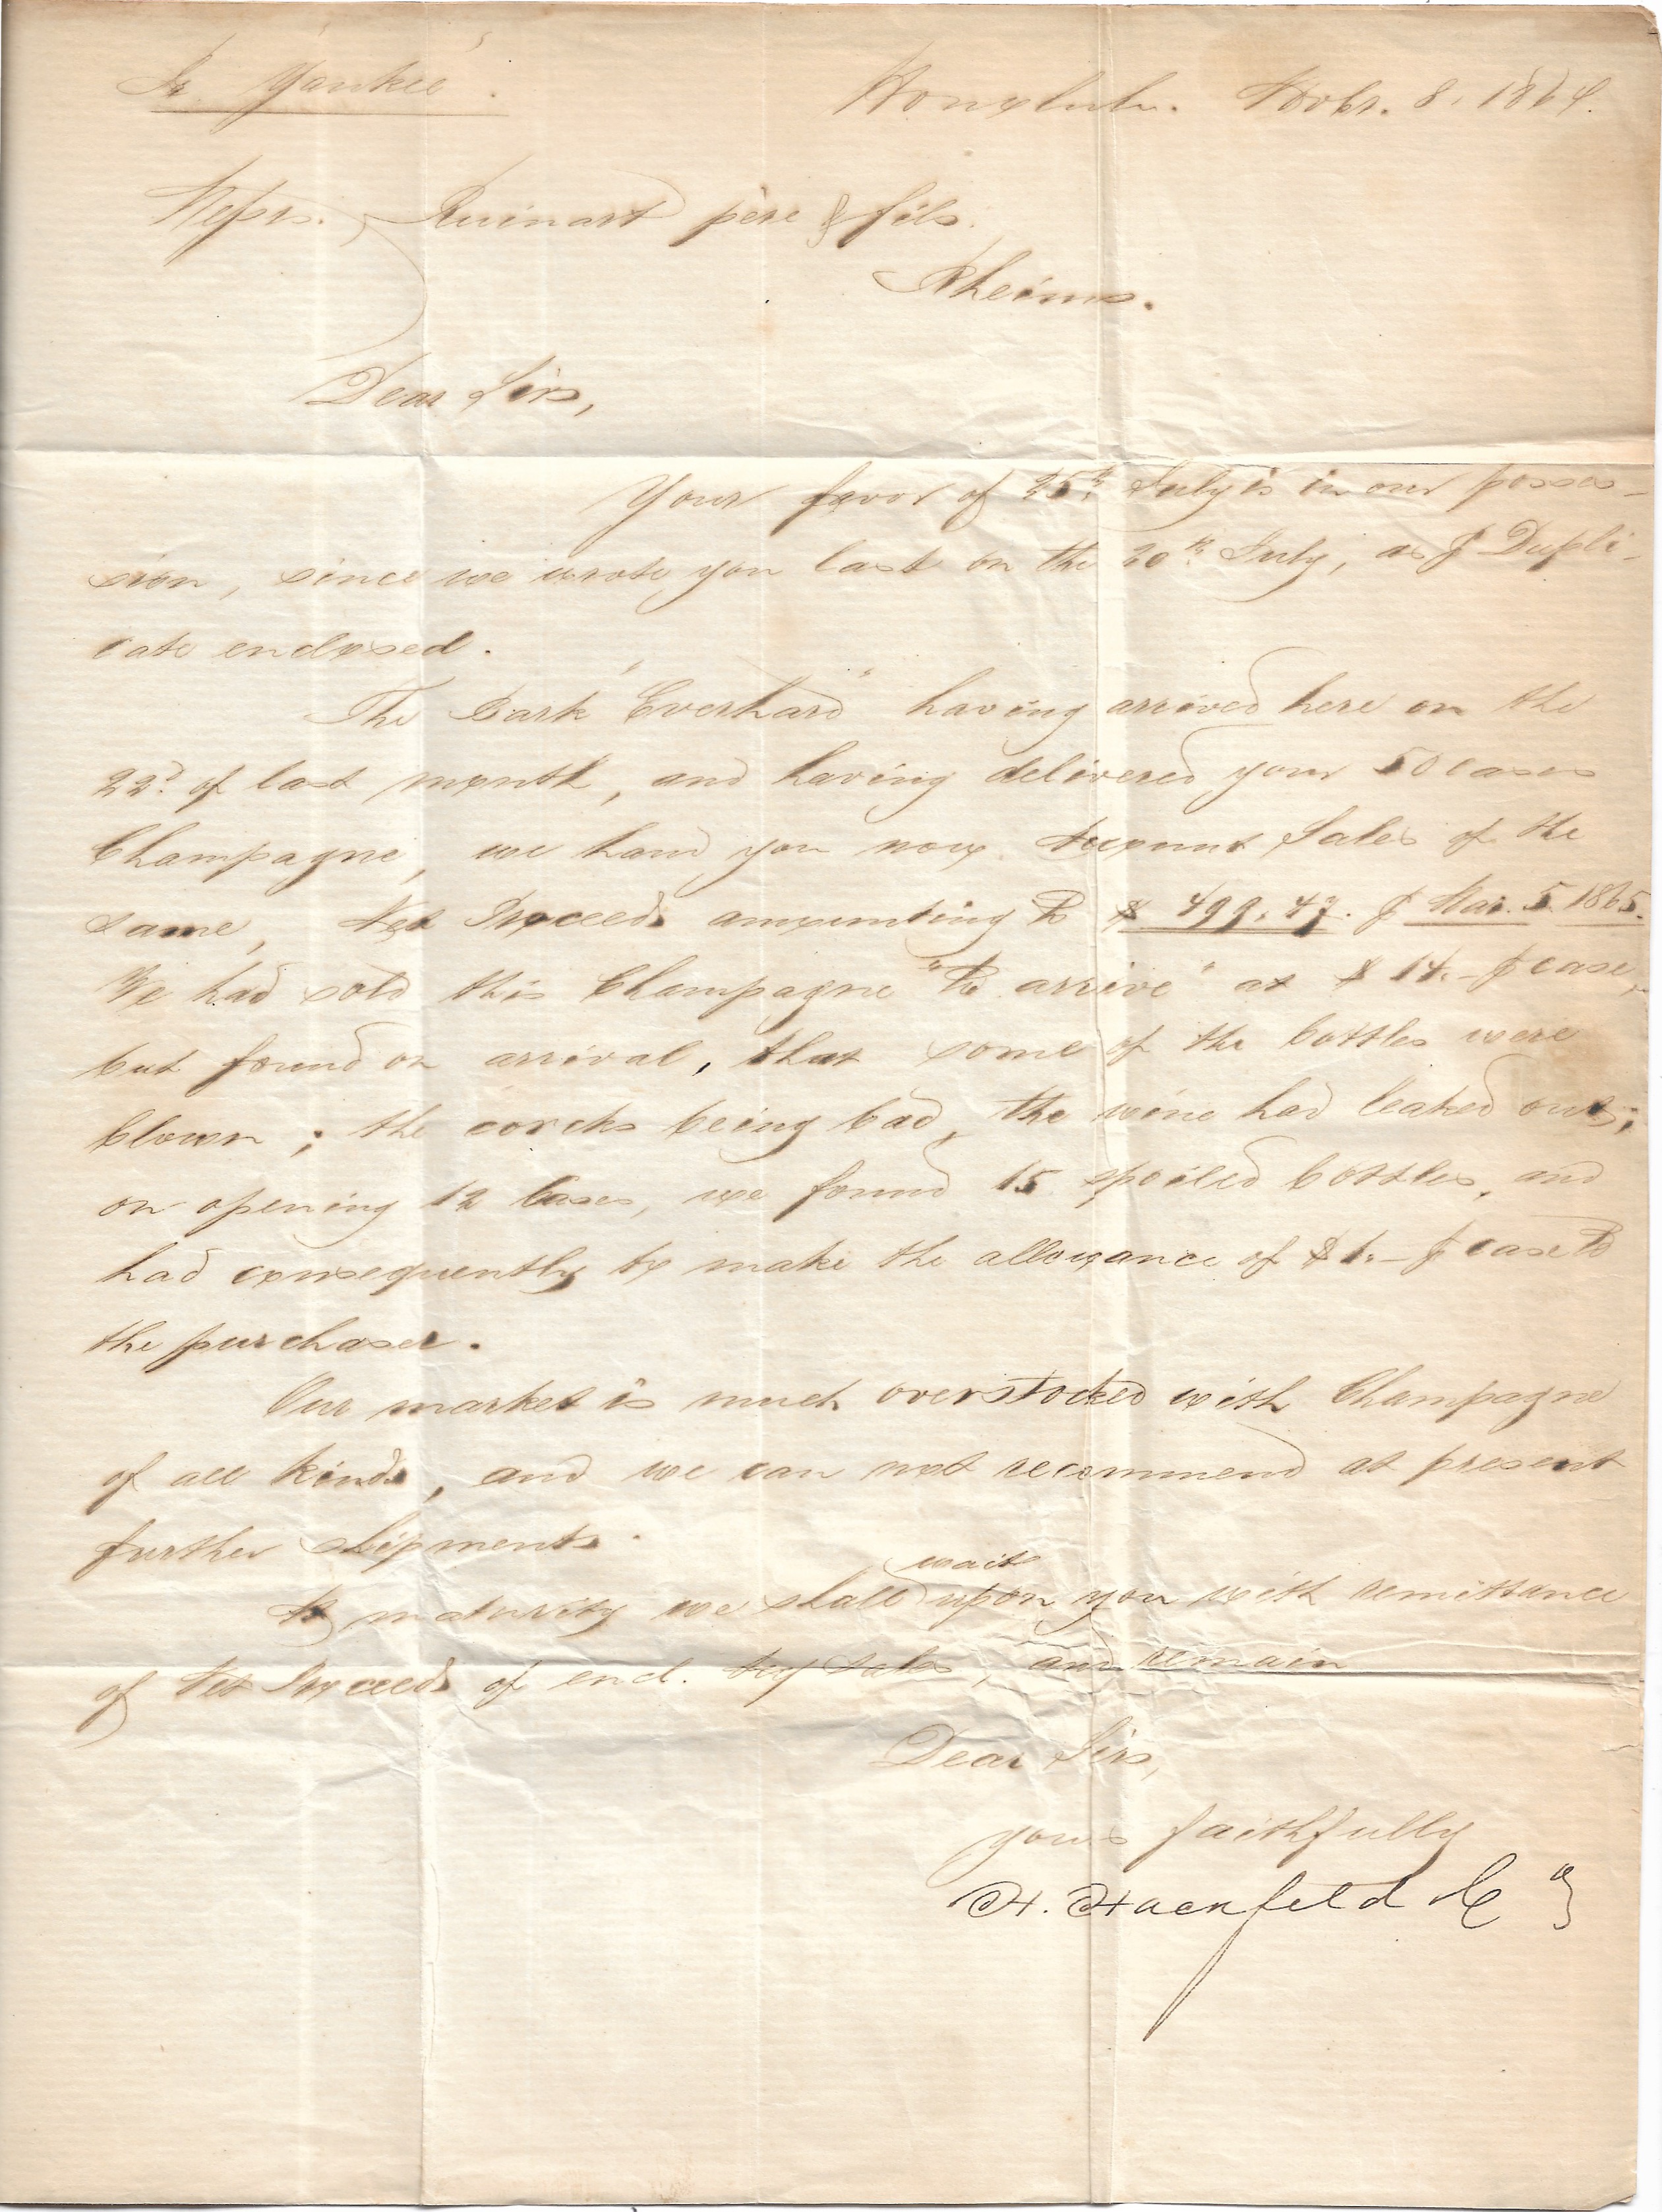 pr "Yankee".
Honolulu. Novbr. 8. 1864.
Messrs. Ruinart père & fils.
Rheims.
Dear Sirs,
Your favor of 25th July is in our posses-
sion, since we wrote you last on the 20th July, as pr Dupli-
cate enclosed.
The Bark "Everhard" having arrived here on the
22d of last month, and having delivered your 50 cases
Champagne, we hand you now Account Sales of the
same, Net Proceeds amounting to $ 499.47. pr Mar. 5. 1865.
We had sold this Champagne "to arrive" at $ 14.- pr case,
but found on arrival, that some of the bottles were
blown; the corcks being bad, the wine had leaked out;
on opening 12 Cases, we found 15 spoiled bottles, and
had consequently to make the allowance of $ 1.- pr case to
the purchaser.
Our market is much overstocked with Champagne
of all kinds, and we can not recommend at present
further shipments.
At maturity we shall wait upon you with remittance
of Net Proceeds of encl. Acct Sales, and remain
Dear Sirs,
yours faithfully
H. Hackfeld & Co